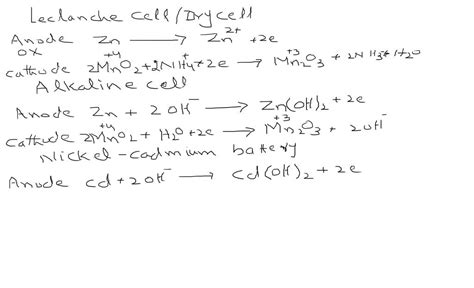 Leclanche Cell/Dry cell
Anode Zn ⟶ Zn²⁺ + 2e
OX
Cathode 2MnO₂ + 2NH₄⁺ + 2e ⟶ Mn₂O₃ + 2NH₃ + H₂O
+4 +3
Alkaline cell
Anode Zn + 2OH⁻ ⟶ Zn(OH)₂ + 2e
+4 +3
Cathode 2MnO₂ + H₂O + 2e ⟶ Mn₂O₃ + 2OH⁻
Nickel-cadmium battery
Anode Cd + 2OH⁻ ⟶ Cd(OH)₂ + 2e